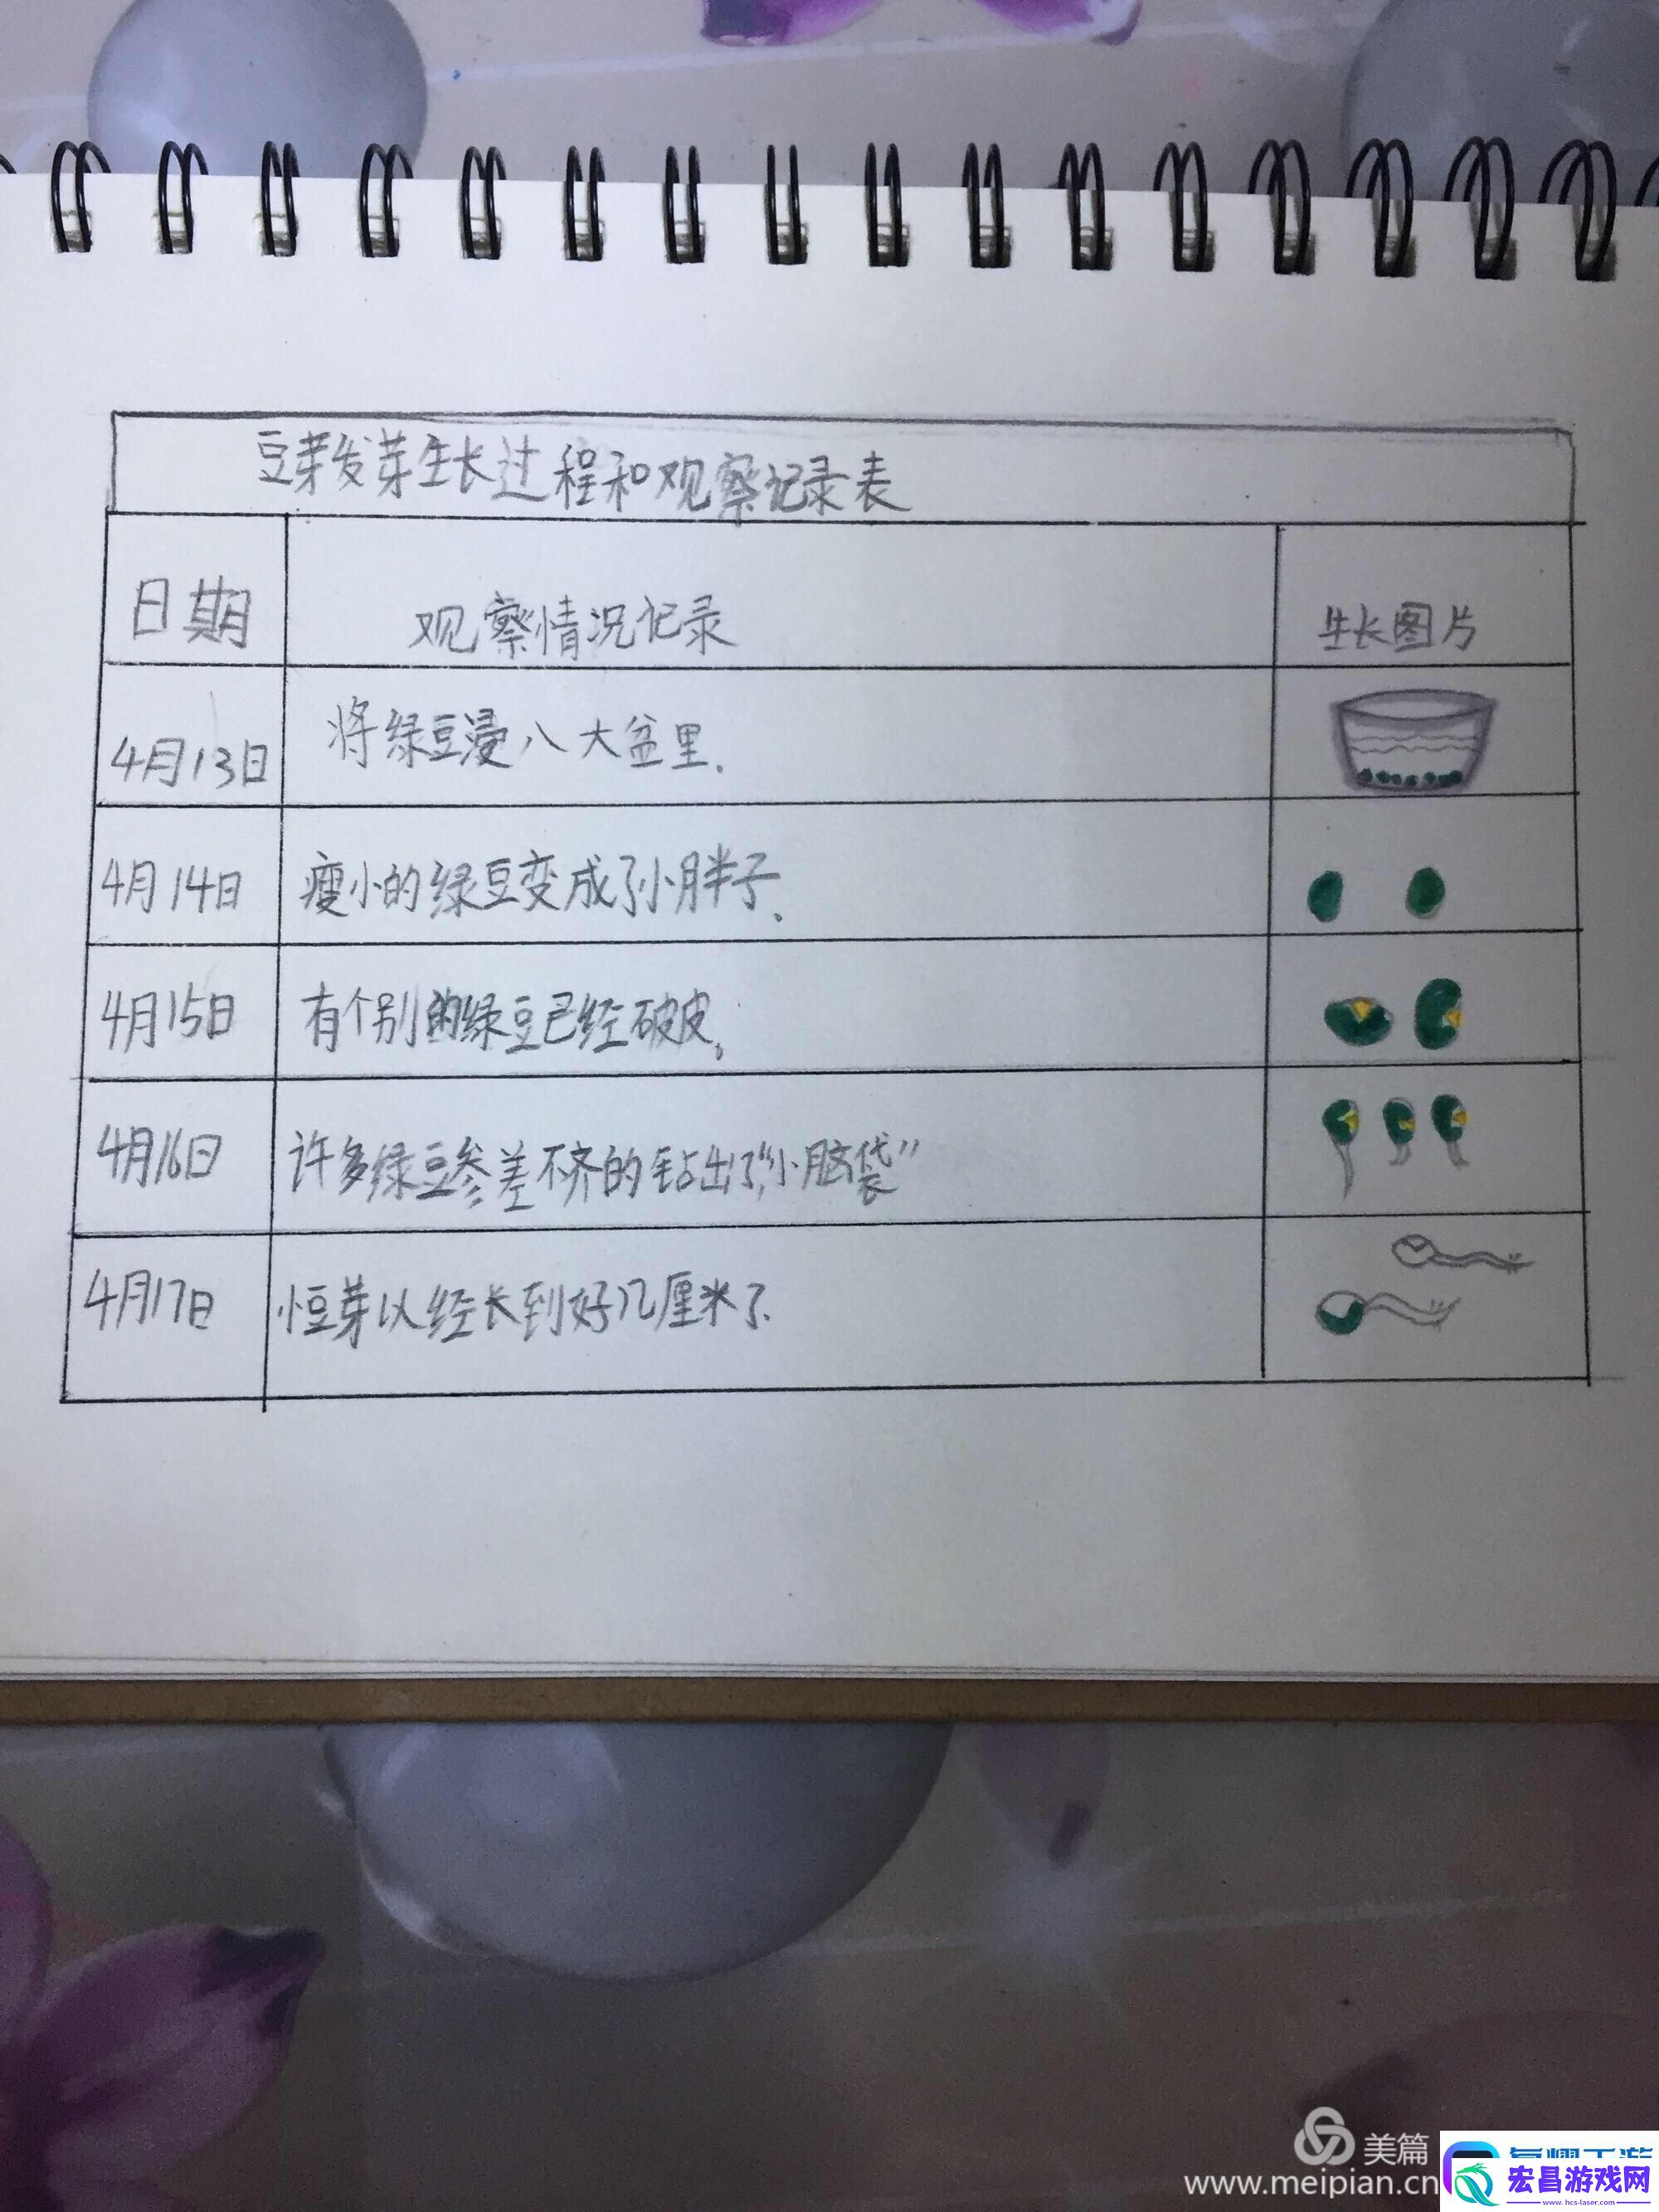 豆芽发芽生长过程和观察记录表
日期 观察情况记录 生长图片
4月13日 将绿豆浸八大盆里.
4月14日 瘦小的绿豆变成了小胖子.
4月15日 有个别的绿豆已经破皮。
4月16日 许多绿豆参差不齐的钻出了“小脑袋”
4月17日 小豆芽以经长到好几厘米了.
美篇
www.meipian.cn
宏昌游戏网
www.hcs-laser.com